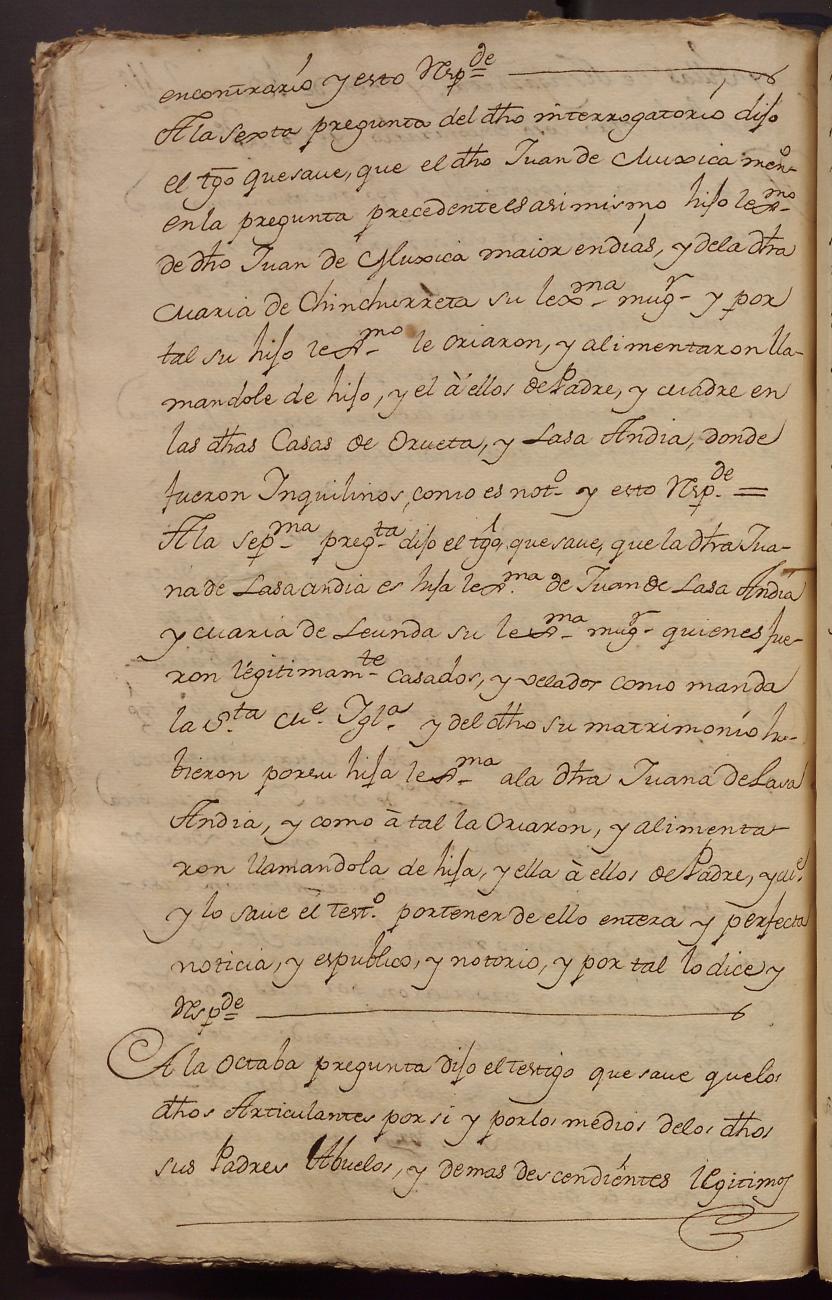 encontrarío y esto Resp.de
A la sexta pregunta del dho interrogatorio dijo
el tgo que save, que el dho Juan de Muxica men.or
en la pregunta precedente es asimismo hijo lex.mo
de dho Juan de Muxica maior en dias, y de la dha
Maria de Chinchurreta su lex.ma mug.r y por
tal su hijo lex.mo le criaron, y alimentaron lla-
mandole de hijo, y el à ellos de Padre, y Madre en
las dhas Casas de Orueta, y Lasa Andia, donde
fueron Inquilinos, como es not.o y esto Resp.de =
A la sep.ma preg.ta dijo el tgo, que save, que la dha Jua-
na de Lasaandia es hija lex.ma de Juan de Lasa Andia
y Maria de Leunda su lex.ma mug.r quienes fue-
ron légitimam.te casados, y velados como manda
la S.ta M.e Igl.a y del dho su matrimonio hu-
bieron por su hija lex.ma a la dha Juana de Lasa
Andia, y como à tal la Criaron, y alimenta-
ron llamandola de hija, y ella à ellos de Padre, y M.e
y lo save el test.o por tener de ello entera y perfecta
noticia, y es publico, y notorio, y por tal lo dice y
Resp.de
A la Octaba pregunta dijo el testigo que save que los
dhos Articulantes por si y por los medios de los dhos
sus Padres Abuelos, y demas descendiéntes legitimos